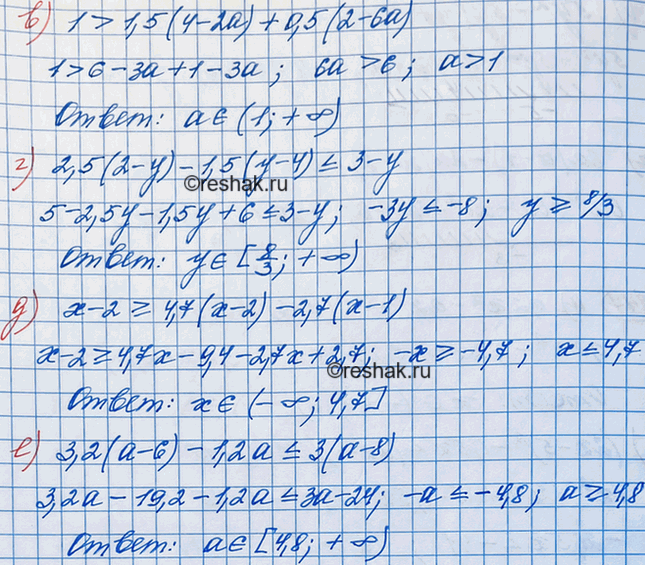 в) 1 > 1,5(4-2a) + 0,5(2-6a)
1 > 6 - 3a + 1 - 3a ; 6a > 6 ; a > 1
Ответ: a ∈ (1; +∞)
г) 2,5(2-y) - 1,5(y-4) ≤ 3-y
©reshak.ru
5 - 2,5y - 1,5y + 6 ≤ 3-y ; -3y ≤ -8 ; y ≥ 8/3
Ответ: y ∈ [8/3; +∞)
д) x-2 ≥ 4,7(x-2) - 2,7(x-1)
x-2 ≥ 4,7x - 9,4 - 2,7x + 2,7 ; -x ≥ -4,7 ; x ≤ 4,7
©reshak.ru
Ответ: x ∈ (-∞; 4,7]
е) 3,2(a-6) - 1,2a ≤ 3(a-8)
3,2a - 19,2 - 1,2a ≤ 3a - 24 ; -a ≤ -4,8 ; a ≥ 4,8
Ответ: a ∈ [4,8; +∞)